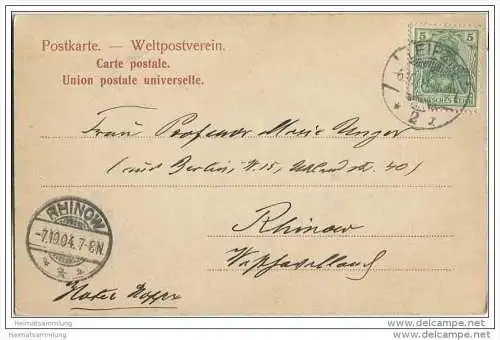 Postkarte. — Weltpostverein.
Carte postale.
Union postale universelle.
5 5
LEIPZIG
2
DEUTSCHES REICH
Frau Professor Marie Unger
(aus Berlin, W. 15, Uhlandstr. 40)
Rhinow
Westhavelland
RHINOW
-7.10.04. 7-8N.
Heimatsammlung
Heimatsammlung